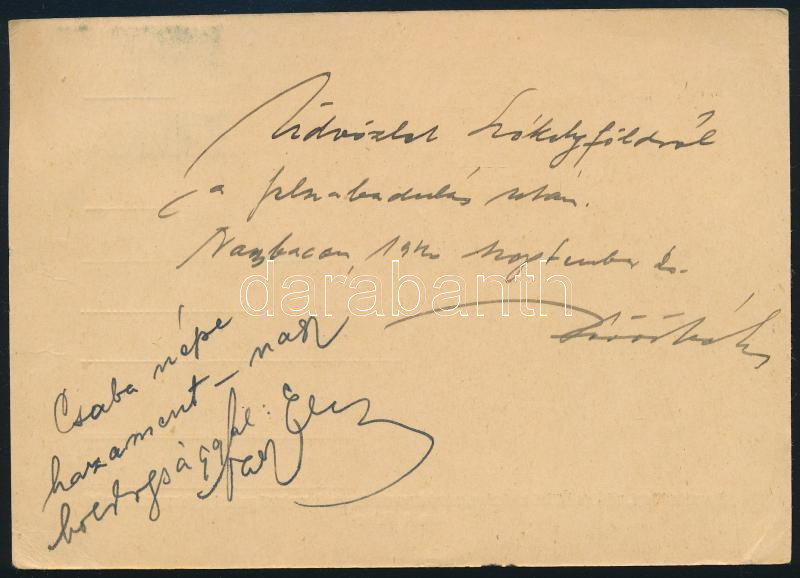 Üdvözlet Székelyföldről
a felszabadulás után.
Nagybacon 1940 szeptember 20.
darabanth
Csaba népe
hazament – nagy
boldogsággal: